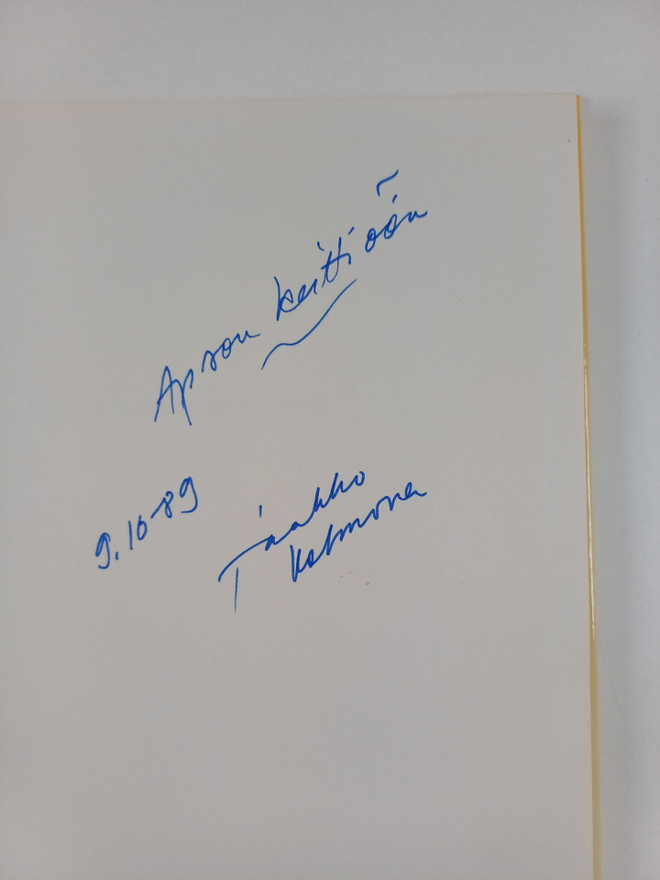 Apson keittiöön
9.10-89
Jaakko
Kolmonen